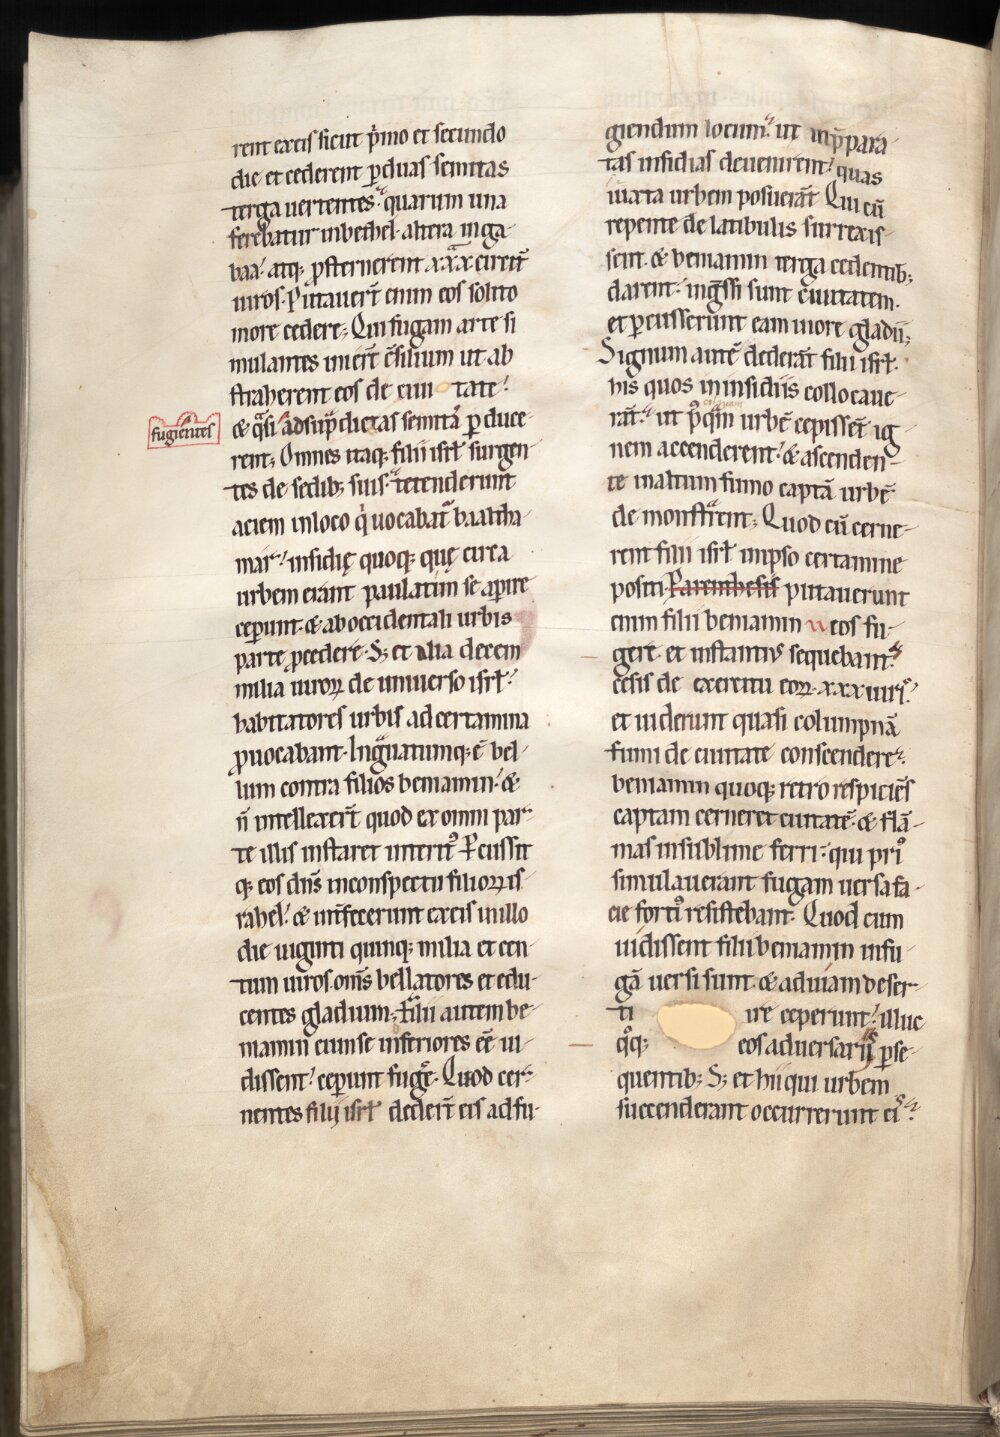 rent ex eis sicut p̍mo et secundo
die· et cederent ꝑ duas semitas
terga uertentes· quarum una
ferebatur in bethel· altera in ga-
baa· atq; ꝓsternerent xxx circit̄
uiros· Putauer̄t enim eos solito
more cedere; Qui fugam arte si
mulantes inier̄t c̄silium ut ab
straherent eos de ciui tate·
& q̄si ad sup̄dictas semitā ꝑduce-
fugientes
rent; Omnes itaq; filii isrł surgen
tes de sedib; suis· tetenderunt
aciem in loco q̍ uocabat̄ baaltha
mar· insidię quoq; quę circa
urbem erant paulatim se aꝑire
ceꝑunt· & ab occidentali urbis
parte ꝓcedere· S; et alia decem
milia uiroꝝ de uniuerso isrł·
habitatores urbis ad certamina
ꝓuocabant· Ing̃uatumq; ē bel-
lum contra filios beniamin· &
ñ intellexer̄t quod ex omni par-
te illis instaret interit᷒ Ꝑcussit
q; eos dn̄s in conspectu filioꝝ is-
rahel· & int̄fecerunt ex eis in illo
die uiginti quinq; milia et cen-
tum uiros· om̄s bellatores et edu-
centes gladium; Filii autem be-
niamin cum se inferiores eē ui-
dissent· ceꝑunt fuge᷑· Quod cer-
nentes filij isrł deder̄t eis ad fu-
giendum locum· ut in p̄para
tas insidias deuenirent· quas
iuxta urbem posuerāt Qui cū
repente de latibulis surrexis-
sent & beniamin terga cedentib;
darent· ing̃ssi sunt ciuitatem·
et ꝑcusserunt eam in ore gladii;
Signum autē dederāt filii isrł·
his quos in insidiis collocaue-
rāt· ut p᷒q̄m urbē cepissēt ig
nem accenderent· & ascenden-
te in altum fumo captā urbē
demonstrarent; Quod cū cerne-
rent filii isrł in ipso certamine
positi Parenthesis putauerunt
enim filii beniamin eos fu-
gere et instanti᷒ sequebant᷑
cesis de exercitu eoꝝ· xxx uiri᷒·
et uiderunt quasi columpnā
fumi de ciuitate conscendere·
beniamin quoq; retro respiciēs
captam cerneret ciuitatē· & flā-
mas in sublime ferri· qui pri᷒
simulauerant fugam uersa fa-
cie forti᷒ resistebant· Quod cum
uidissent filii beniamin in fu-
gā uersi sunt· & ad uiam deser-
ti ire ceperunt· illuc
q᷒q; eos aduersarijs ꝑse-
quentib; S; et hii qui urbem
succenderant occurrerunt eis·